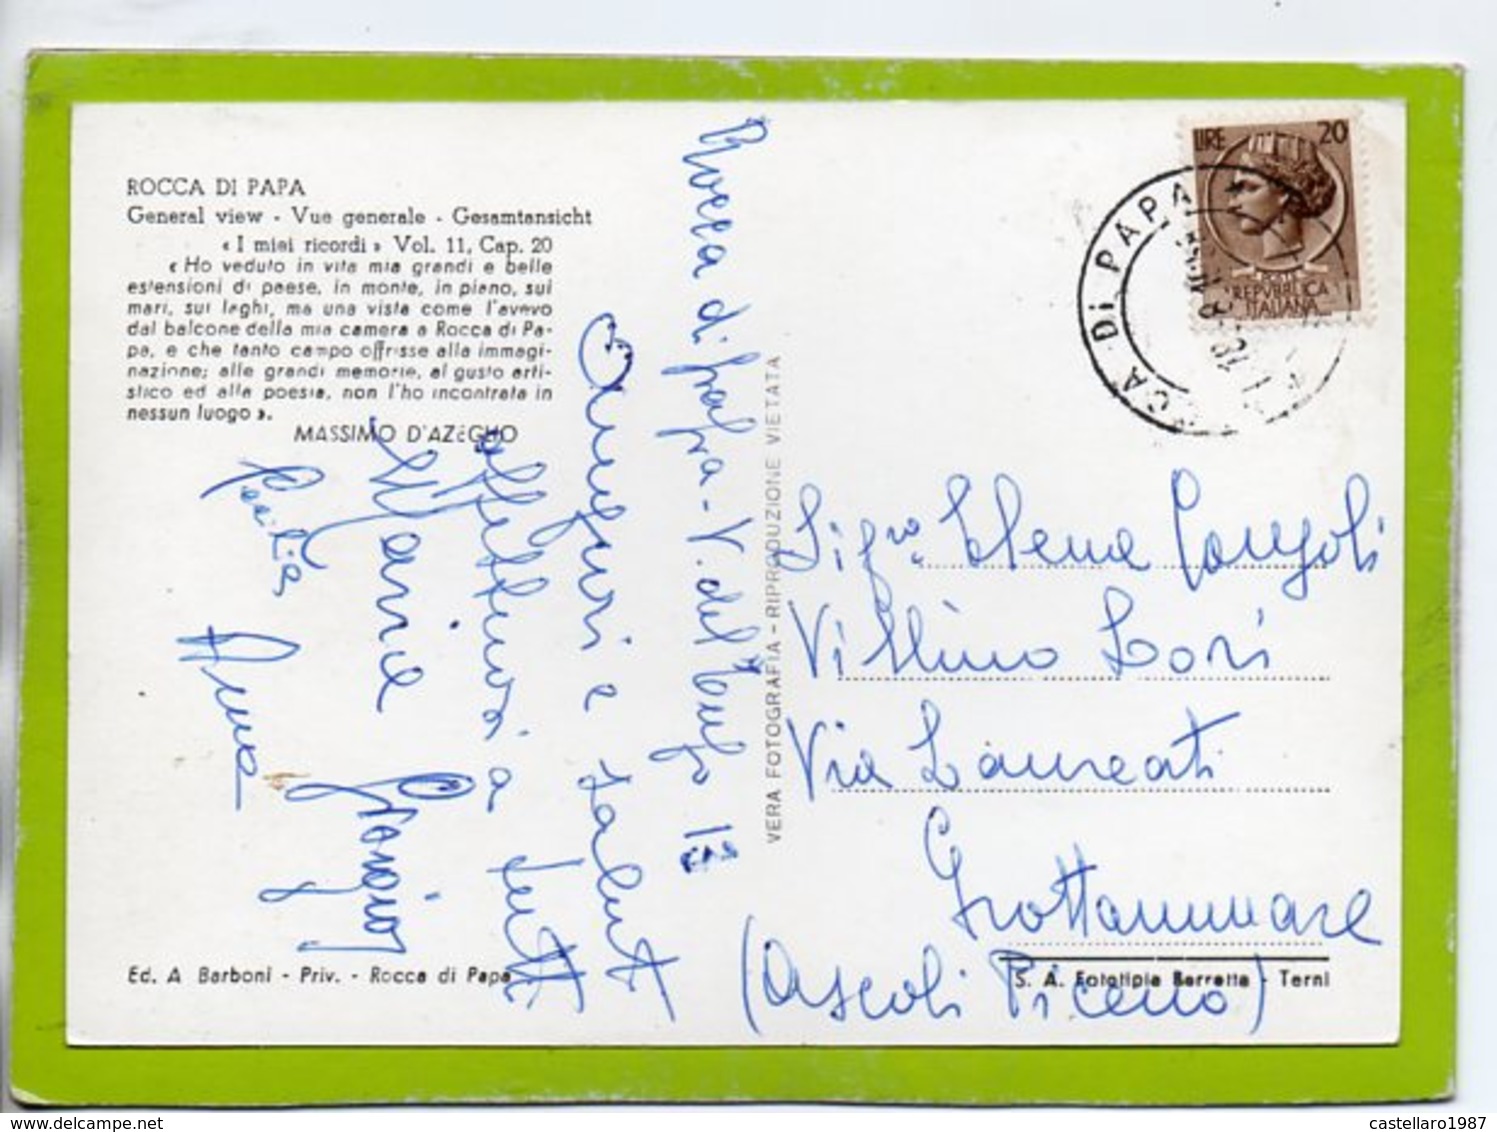 ROCCA DI PAPA
General view - Vue generale - Gesamtansicht
« I miei ricordi » Vol. 11, Cap. 20
« Ho veduto in vita mia grandi e belle
estensioni di paese, in monte, in piano, sui
mari, sui laghi, ma una vista come l'avevo
dal balcone della mia camera a Rocca di Pa-
pa, e che tanto campo offrisse alla immagi-
nazione; alle grandi memorie, al gusto arti-
stico ed alla poesia, non l'ho incontrata in
nessun luogo ».
MASSIMO D'AZEGLIO
Rocca di Papa - V. del Tufo 13
Auguri e saluti
affettuosi a tutti
Maria Giorgio
Anna
Ed. A Barboni - Priv. - Rocca di Papa
VERA FOTOGRAFIA - RIPRODUZIONE VIETATA
LIRE 20
POSTE
REPVBBLICA
ITALIANA
CA DI PAPA
Sig.ra Elena
Villino Lori
Via Laureati
Grottammare
(Ascoli Piceno)
S. A. Fototipia Berretta - Terni
castellaro1987